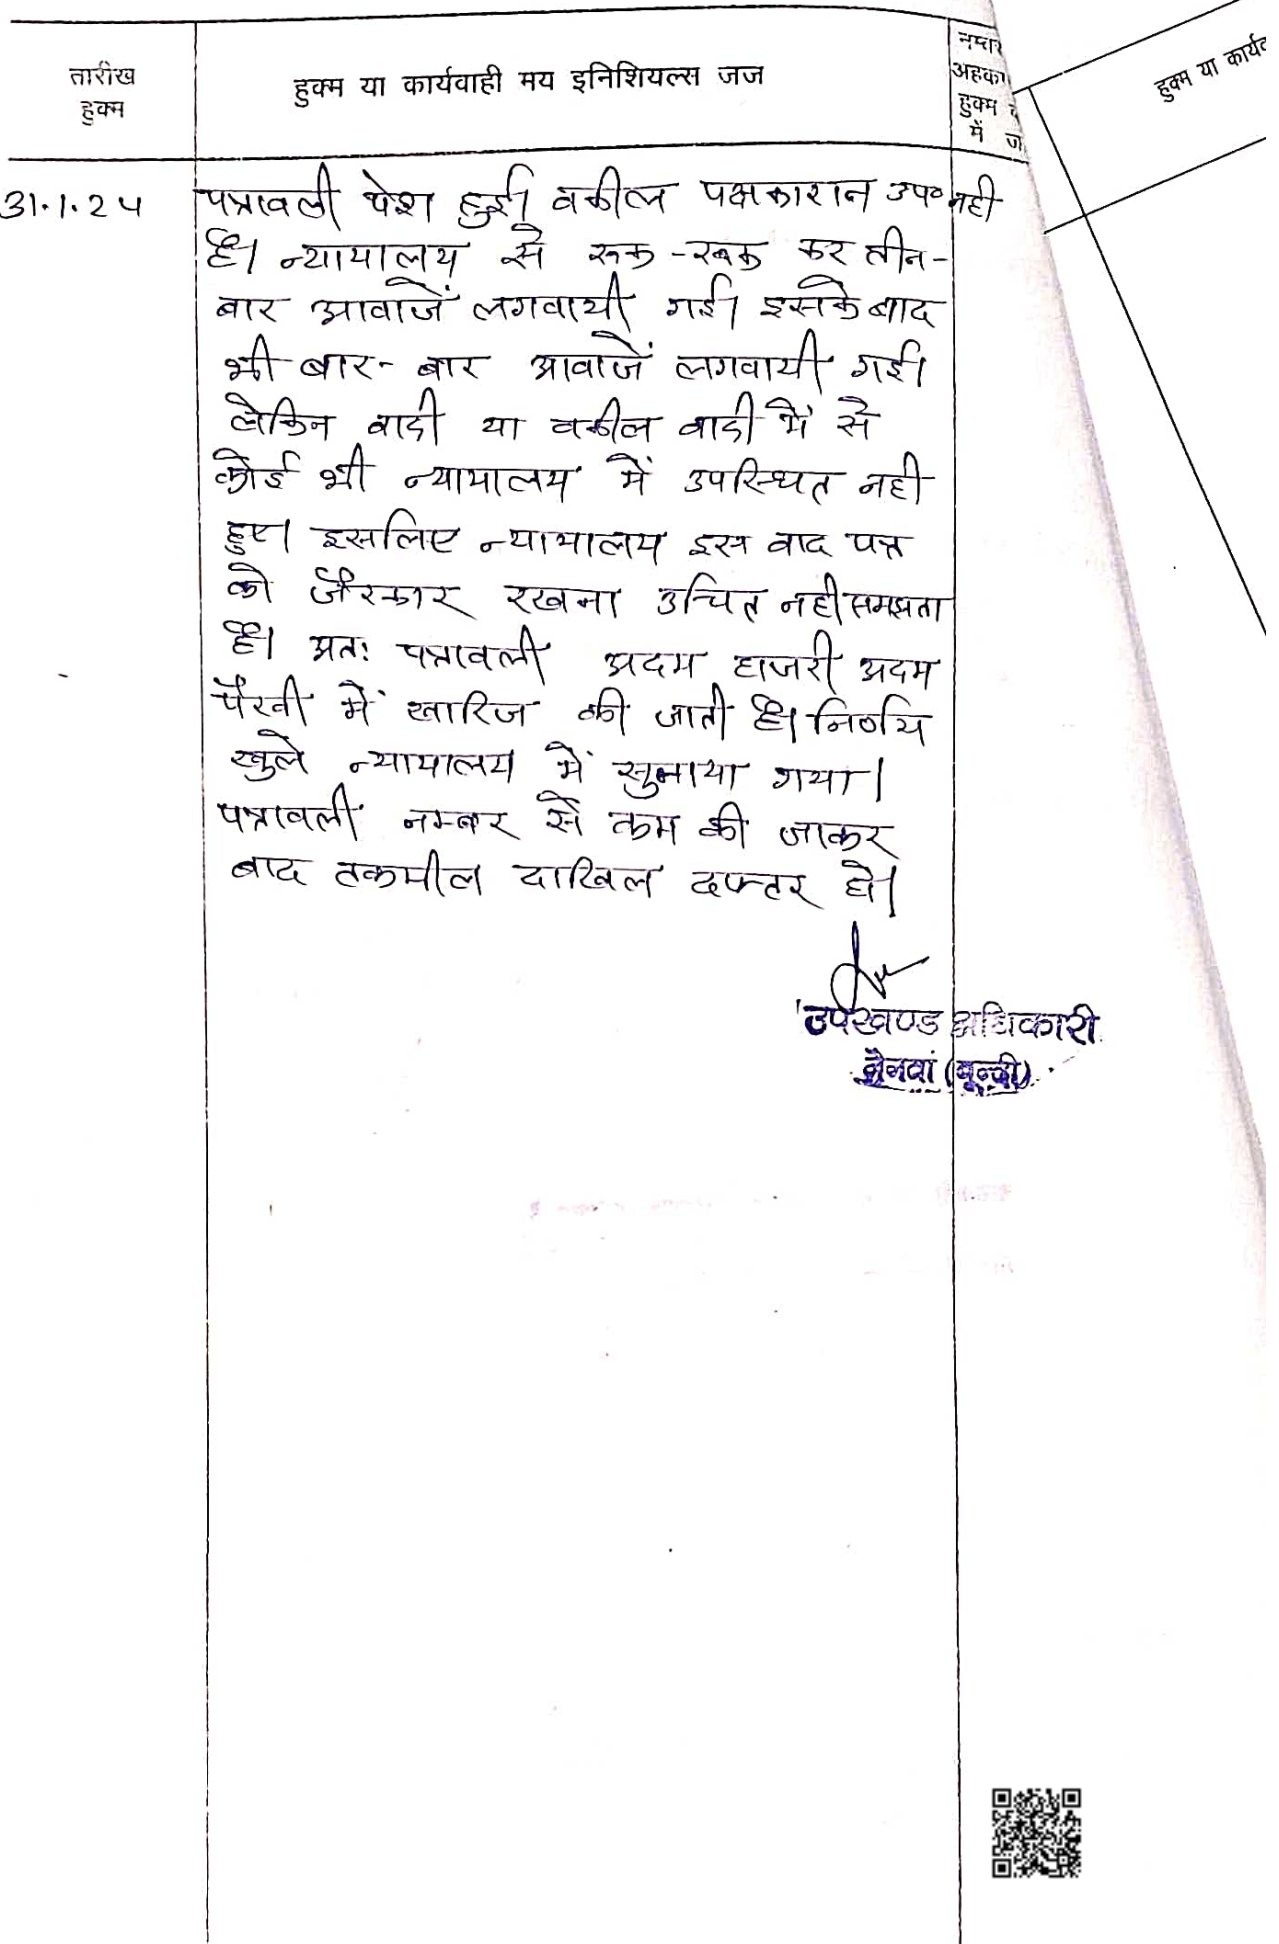 तारीख
हुक्म
हुक्म या कार्यवाही मय इनिशियल्स जज
नम्बर
अहका
हुक्म
में ज
हुक्म या कार्यव
31.1.24 पत्रावली पेश हुई। वकील पक्षकारान उप० नही
है। न्यायालय से रूक-रूक कर तीन-
बार आवाजें लगवायी गई। इसके बाद
भी बार-बार आवाजें लगवायी गई।
लेकिन वादी या वकील वादी में से
कोई भी न्यायालय में उपस्थित नही
हुए। इसलिए न्यायालय इस वाद पत्र
को जैरकार रखना उचित नही समझता
है। अतः पत्रावली अदम हाजरी अदम
पैरवी में खारिज की जाती है। निर्णय
खुले न्यायालय में सुनाया गया।
पत्रावली नम्बर से कम की जाकर
बाद तकमील दाखिल दफ्तर हो।
उपखण्ड अधिकारी
नैनवां (बून्दी)